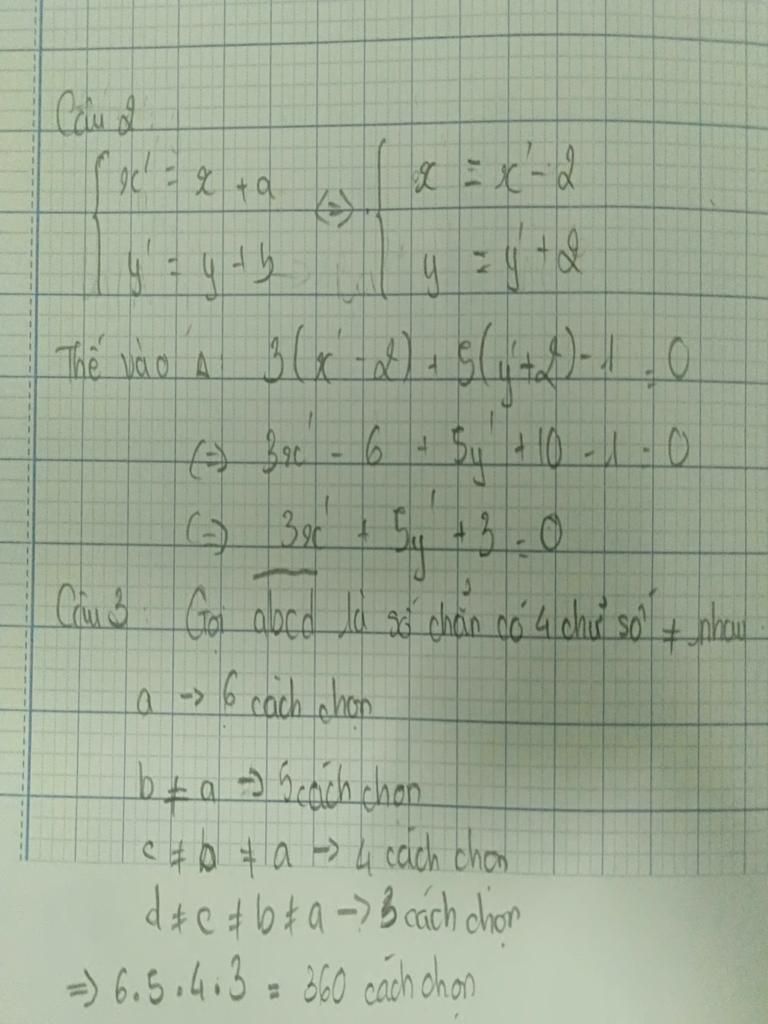 Câu 2
x' = x + a <=> x = x' - 2
y' = y + b y = y' + 2
Thế vào Δ: 3(x' - 2) + 5(y' + 2) - 1 = 0
(=) 3x' - 6 + 5y' + 10 - 1 = 0
(=) 3x' + 5y' + 3 = 0
Câu 3: Gọi abcd là số chẵn có 4 chữ số ≠ nhau
a -> 6 cách chọn
b ≠ a => 5 cách chọn
c ≠ b ≠ a -> 4 cách chọn
d ≠ c ≠ b ≠ a -> 3 cách chọn
=> 6.5.4.3 = 360 cách chọn